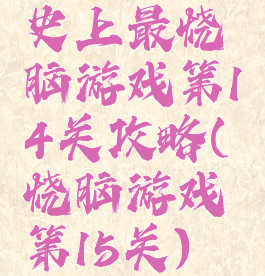 史上最烧
脑游戏第1
4关攻略(
烧脑游戏
第15关)